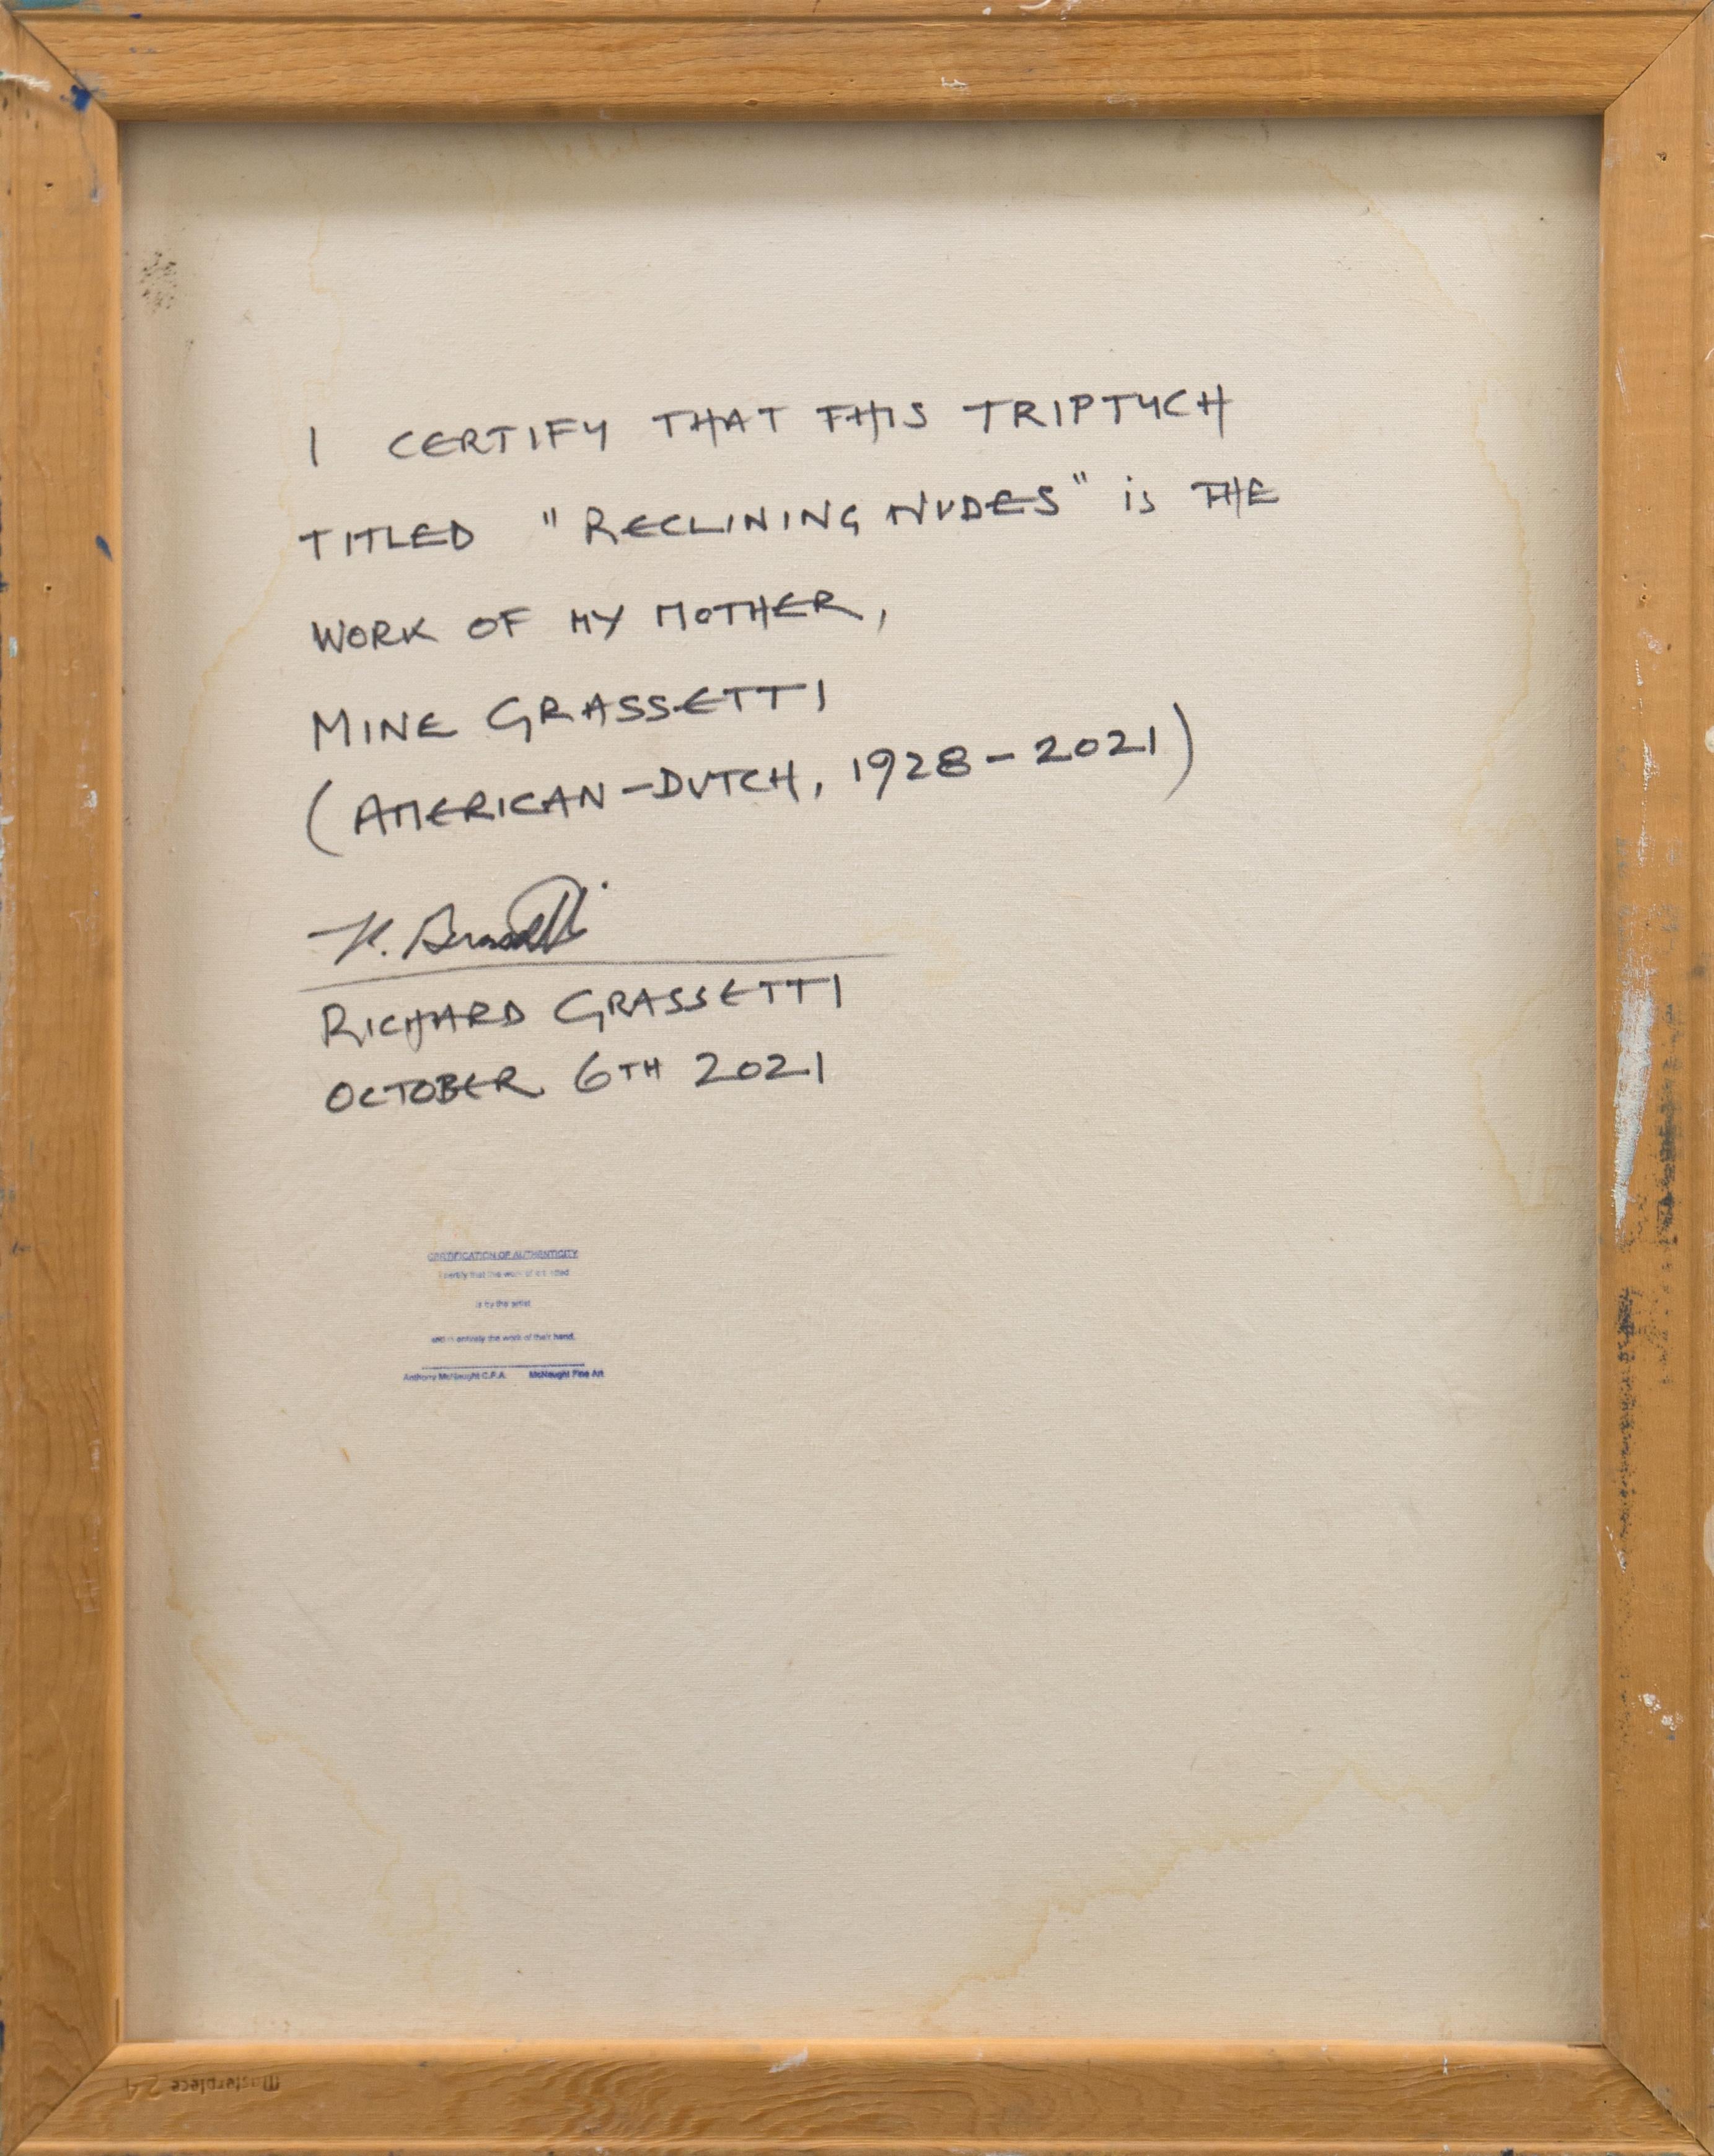 I CERTIFY THAT THIS TRIPTYCH
TITLED "RECLINING NUDES" is THE
WORK OF MY MOTHER,
MINE GRASSETTI
(AMERICAN-DUTCH, 1928-2021)
RICHARD GRASSETTI
OCTOBER 6TH 2021
CERTIFICATION OF AUTHENTICITY
I certify that the work of art titled
is by the artist
and is entirely the work of their hand.
Anthony McNaught C.F.A. McNaught Fine Art
Masterpiece 24